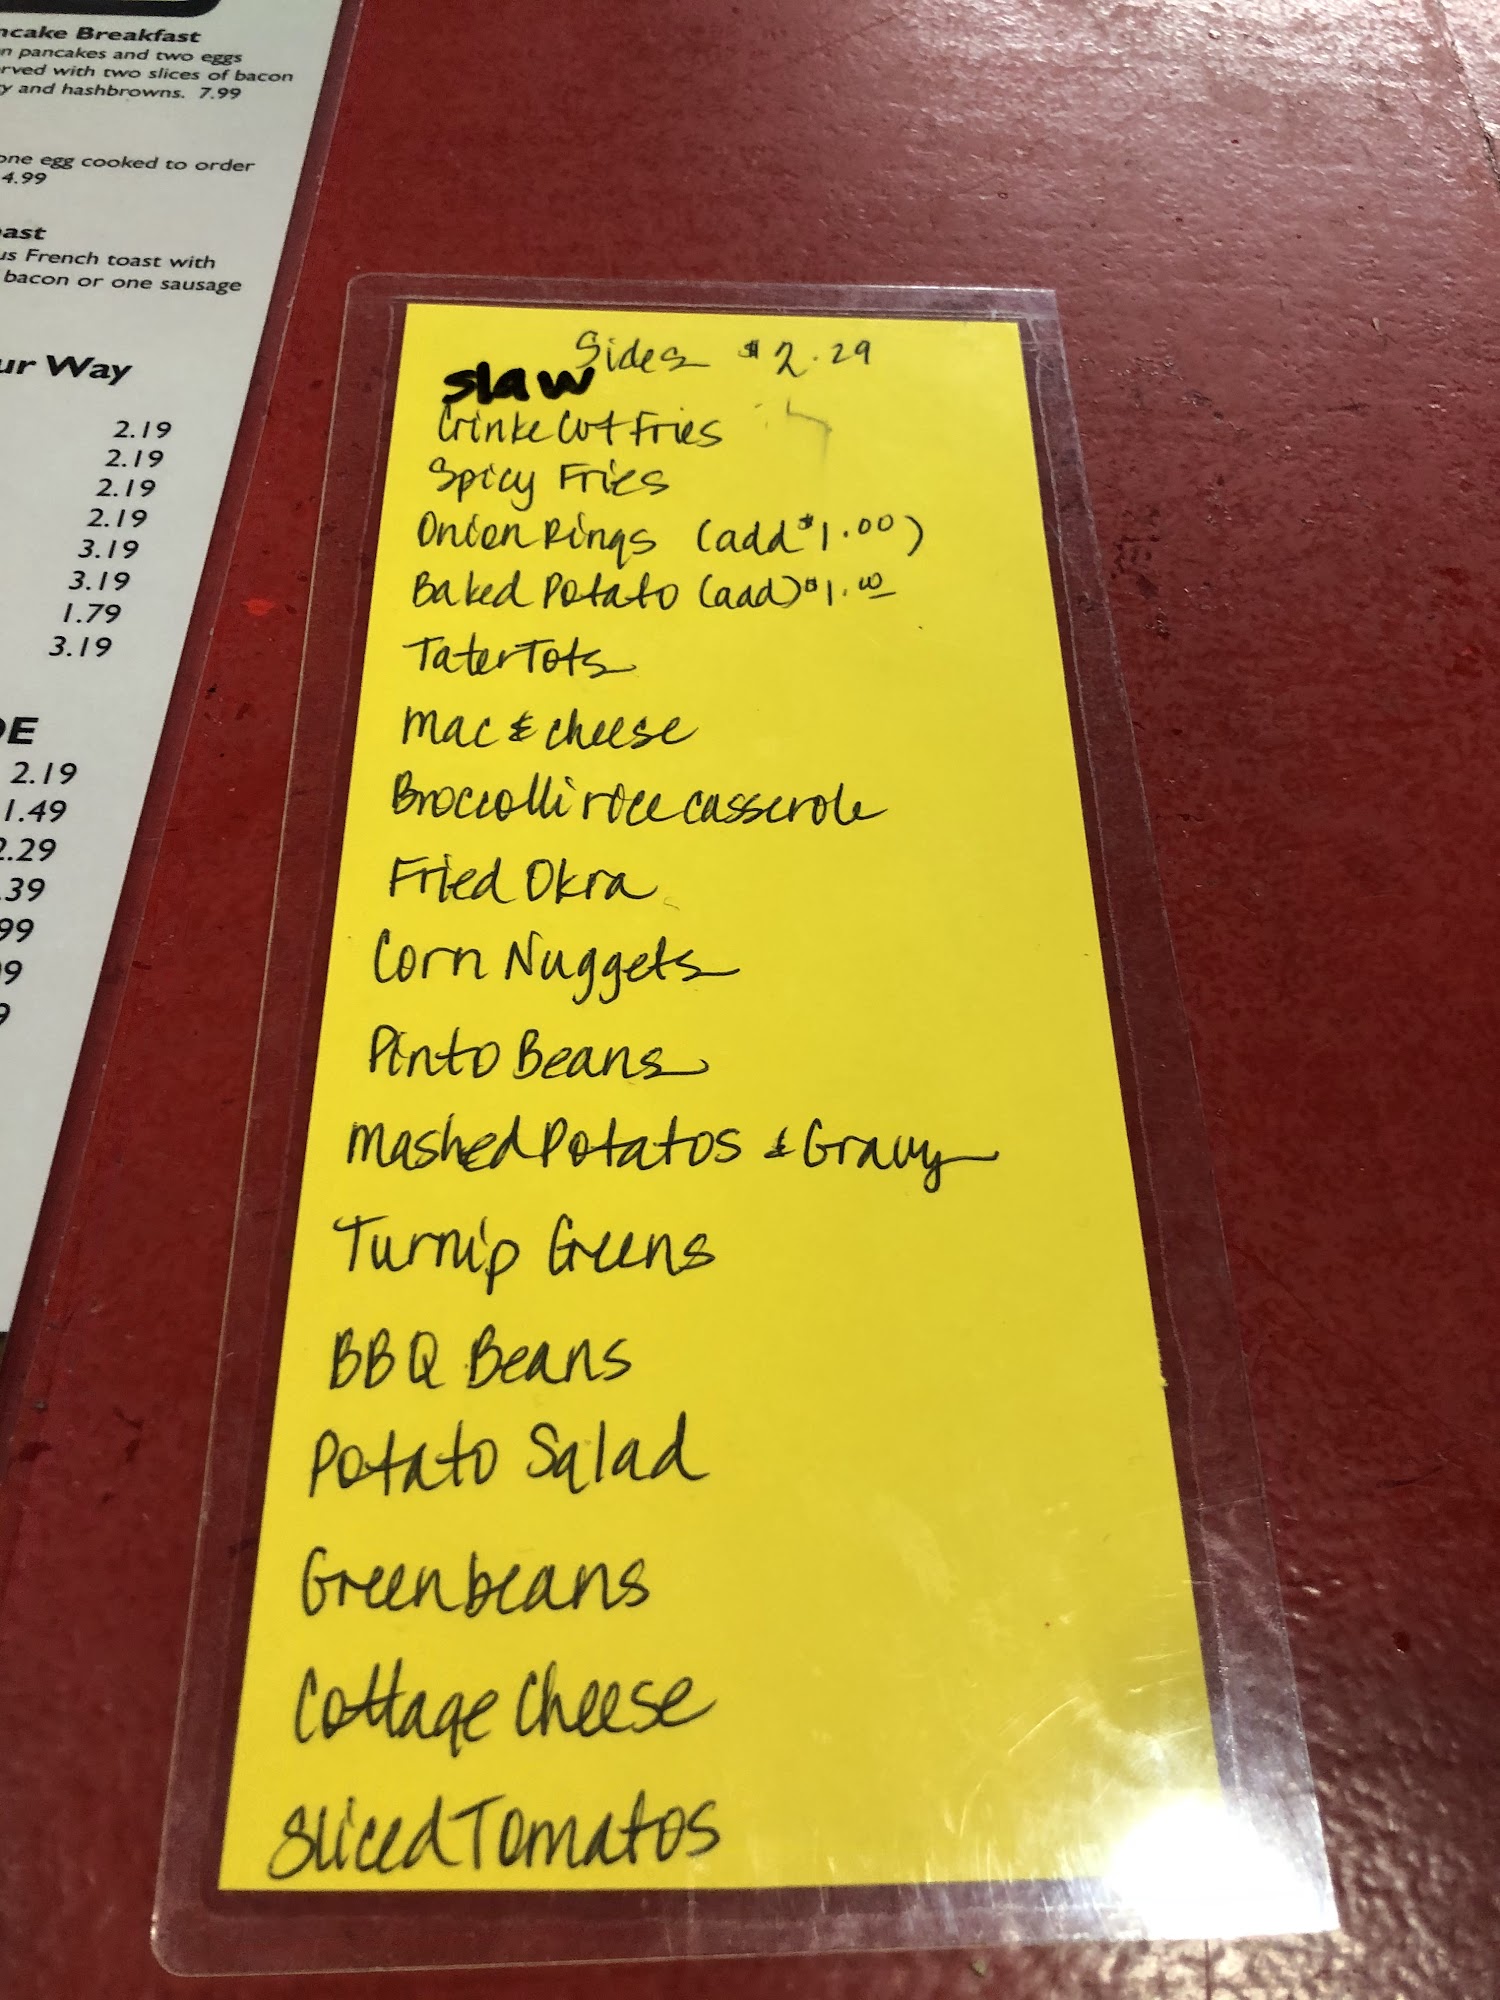 ncake Breakfast
n pancakes and two eggs
rved with two slices of bacon
y and hashbrowns. 7.99
one egg cooked to order
4.99
ast
us French toast with
bacon or one sausage
ur Way
2.19
2.19
2.19
2.19
3.19
3.19
1.79
3.19
DE
2.19
1.49
2.29
.39
99
9
9
Sides $2.29
slaw
Crinke Cut Fries
Spicy Fries
Onion Rings (add $1.00)
Baked Potato (add) $1.00
Tater Tots
Mac & cheese
Broccolli rice casserole
Fried Okra
Corn Nuggets
Pinto Beans
Mashed Potatos & Gravy
Turnip Greens
BBQ Beans
Potato Salad
Greenbeans
Cottage Cheese
Sliced Tomatos